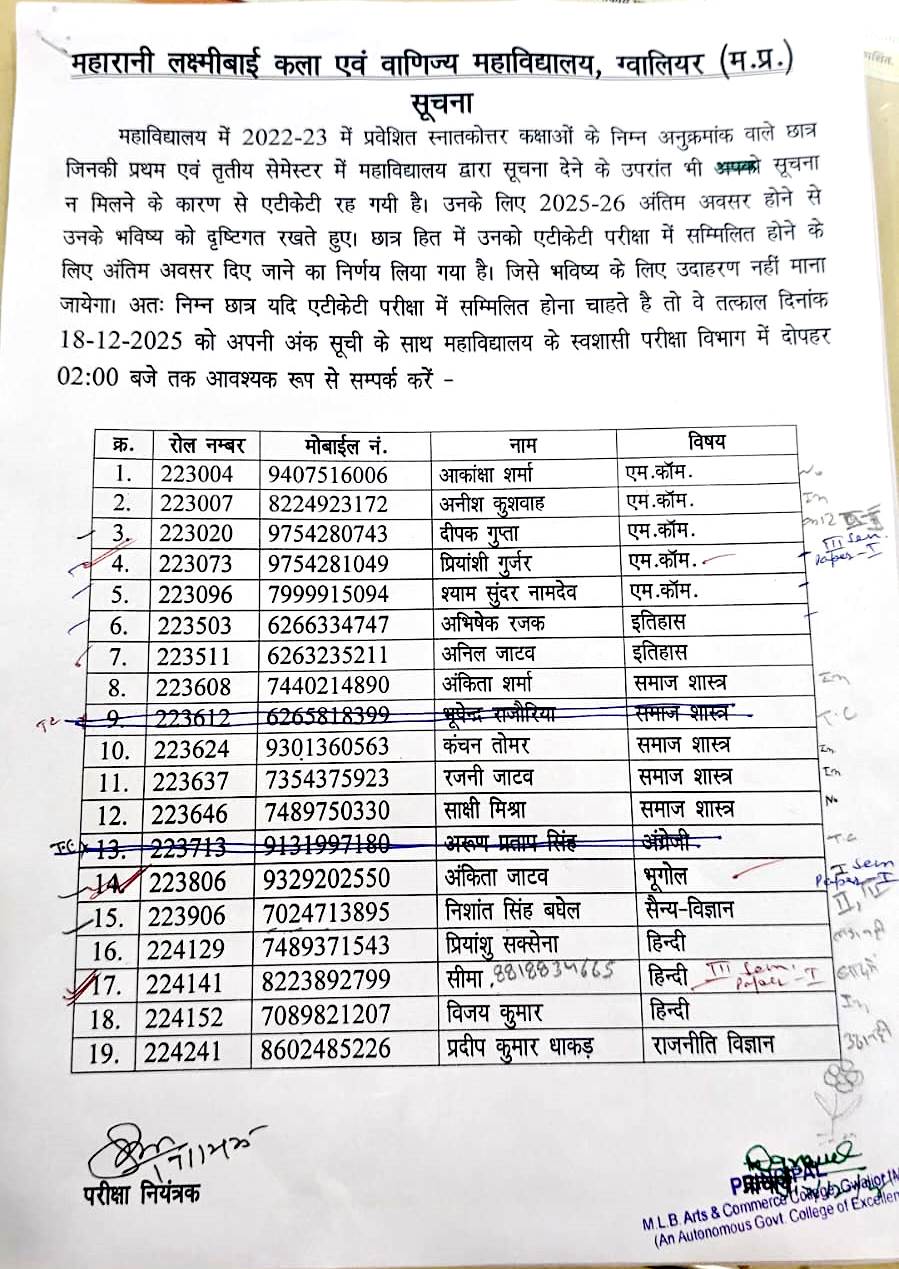 महारानी लक्ष्मीबाई कला एवं वाणिज्य महाविद्यालय, ग्वालियर (म.प्र.)
सूचना
महाविद्यालय में 2022-23 में प्रवेशित स्नातकोत्तर कक्षाओं के निम्न अनुक्रमांक वाले छात्र
जिनकी प्रथम एवं तृतीय सेमेस्टर में महाविद्यालय द्वारा सूचना देने के उपरांत भी सूचना
न मिलने के कारण से एटीकेटी रह गयी है। उनके लिए 2025-26 अंतिम अवसर होने से
उनके भविष्य को दृष्टिगत रखते हुए। छात्र हित में उनको एटीकेटी परीक्षा में सम्मिलित होने के
लिए अंतिम अवसर दिए जाने का निर्णय लिया गया है। जिसे भविष्य के लिए उदाहरण नहीं माना
जायेगा। अतः निम्न छात्र यदि एटीकेटी परीक्षा में सम्मिलित होना चाहते है तो वे तत्काल दिनांक
18-12-2025 को अपनी अंक सूची के साथ महाविद्यालय के स्वशासी परीक्षा विभाग में दोपहर
02:00 बजे तक आवश्यक रूप से सम्पर्क करें -
क्र. रोल नम्बर मोबाईल नं. नाम विषय
1. 223004 9407516006 आकांक्षा शर्मा एम.कॉम. No
2. 223007 8224923172 अनीश कुशवाह एम.कॉम. In
3. 223020 9754280743 दीपक गुप्ता एम.कॉम.
4. 223073 9754281049 प्रियांशी गुर्जर एम.कॉम. III Sem. Paper-I
5. 223096 7999915094 श्याम सुंदर नामदेव एम.कॉम.
6. 223503 6266334747 अभिषेक रजक इतिहास
7. 223511 6263235211 अनिल जाटव इतिहास
8. 223608 7440214890 अंकिता शर्मा समाज शास्त्र In
TC 9. 223612 6265818399 भूपेन्द्र राजौरिया समाज शास्त्र T.C
10. 223624 9301360563 कंचन तोमर समाज शास्त्र In
11. 223637 7354375923 रजनी जाटव समाज शास्त्र In
12. 223646 7489750330 साक्षी मिश्रा समाज शास्त्र No
T.C 13. 223713 9131997180 अरूण प्रताप सिंह अंग्रेजी T.C
14. 223806 9329202550 अंकिता जाटव भूगोल I Sem Paper-I
15. 223906 7024713895 निशांत सिंह बघेल सैन्य-विज्ञान II, III
16. 224129 7489371543 प्रियांशु सक्सेना हिन्दी
17. 224141 8223892799 सीमा 8818834665 हिन्दी III Sem. Paper-I
18. 224152 7089821207 विजय कुमार हिन्दी In
19. 224241 8602485226 प्रदीप कुमार धाकड़ राजनीति विज्ञान
परीक्षा नियंत्रक
PRINCIPAL
M.L.B. Arts & Commerce College, Gwalior
(An Autonomous Govt. College of Excellen